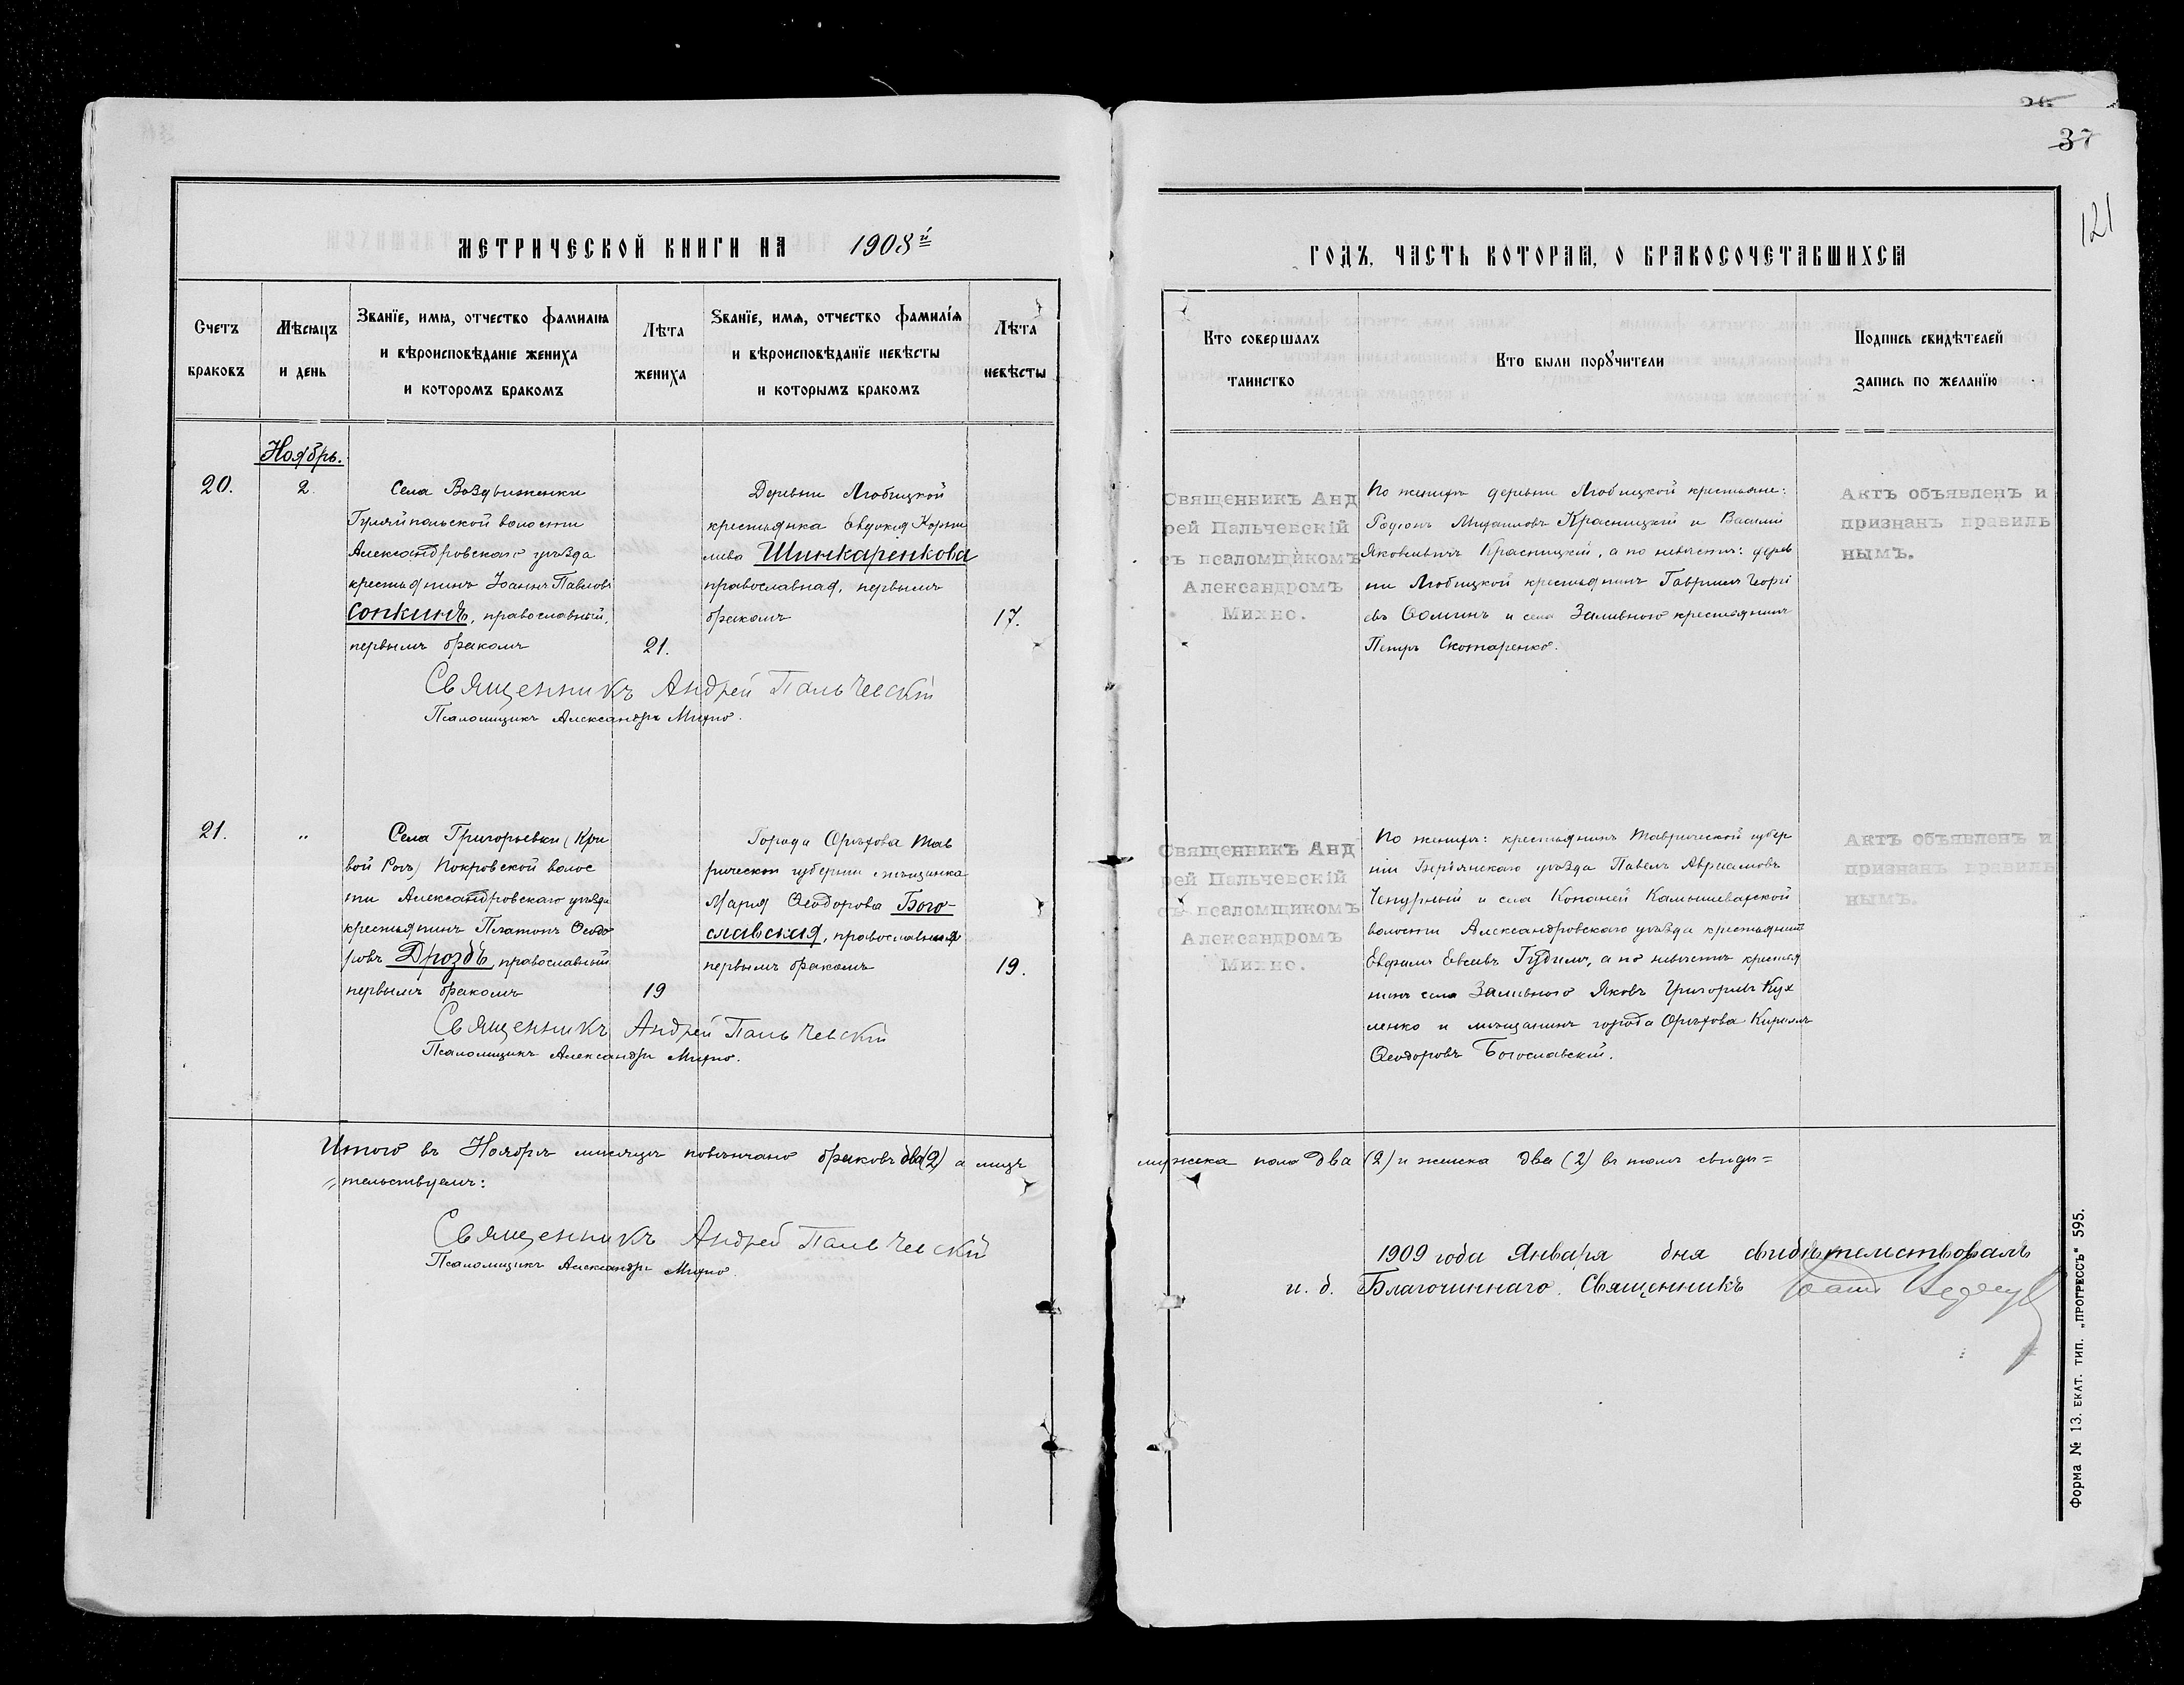 37
121
МЕТРИЧЕСКОЙ КНИГИ НА 1908й
ГОДЪ, ЧАСТЬ КОТОРАЯ, О БРАКОСОЧЕТАВШИХСЯ
Счетъ браковъ
Мѣсяцъ и день
Званїе, имя, отчество фамилія
и вѣроисповѣданіе жениха
и которомъ бракомъ
Лѣта жениха
Званїе, имя, отчество фамилїя
и вѣроисповѣданїе невѣсты
и которымъ бракомъ
Лѣта невѣсты
Кто совершалъ таинство
Кто были порȣчители
Подпись свидѣтелей
запись по желанїю
Ноябрь.
20.
2.
Села Воздвиженки
Гуляйпольской волости
Александровскаго уѣзда
крестьянинъ Іоаннъ Павловъ
Сопкинъ, православный,
первымъ бракомъ
21.
Деревни Любицкой
крестьянка Евдокія Корни
лиева Шинкаренкова
православная, первымъ
бракомъ
17.
Священникъ Анд
рей Пальчевскій
съ псаломщикомъ
Александромъ
Михно.
По женихѣ деревни Любицкой крестьяне:
Родіонъ Михаиловъ Красницкій и Василій
Яковлевичъ Красницкій, а по невѣстѣ: дерев
ни Любицкой крестьянинъ Гавріилъ Георгі
евъ Ѳоминъ и села Заливного крестьянинъ
Петръ Скотаренко.
Актъ объявленъ и
признанъ правиль
нымъ.
Священникъ Андрей Пальчевскій
Псаломщикъ Александръ Михно.
21.
"
Села Григорьевки (Кри
вой Рогъ) Покровской волос
ти Александровскаго уѣзда
крестьянинъ Платонъ Ѳеодо
ровъ Дроздъ, православный
первымъ бракомъ
19
Города Орѣхова Тав
рической губерніи мѣщанка
Марія Ѳеодорова Бого-
славская, православная
первымъ бракомъ
19.
Священникъ Анд
рей Пальчевскій
съ псаломщикомъ
Александромъ
Михно.
По женихѣ: крестьянинъ Таврической губер
ніи Бердянскаго уѣзда Павелъ Авраамовъ
Чепурный и села Копаней Камышеватской
волости Александровскаго уѣзда крестьянинъ
Евфимъ Евсевъ Гудимъ, а по невѣстѣ крестья
нинъ села Заливного Яковъ Григорьевъ Кух
ленко и мѣщанинъ города Орѣхова Кириллъ
Ѳеодоровъ Богославскій.
Актъ объявленъ и
признанъ правиль
нымъ.
Священникъ Андрей Пальчевскій
Псаломщикъ Александръ Михно.
Итого въ Ноябрѣ мѣсяцѣ повѣнчано браковъ два (2) а лицъ мужска пола два (2) и женска два (2) въ томъ свидѣ=
тельствуемъ:
Священникъ Андрей Пальчевскій
Псаломщикъ Александръ Михно.
1909 года Января дня свидѣтельствовалъ
и. д. Благочиннаго Священникъ
Форма № 13. ЕКАТ. ТИП. „ПРОГРЕССЪ" 595.